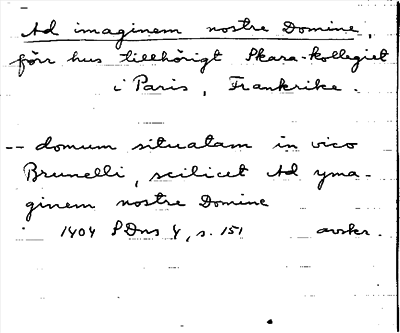 Ad imaginem nostre Domine,
förr hus tillhörigt Skara-kollegiet
i Paris, Frankrike.
-- domum situatam in vico
Brunelli, scilicet Ad yma-
ginem nostre Domine
1404 SDns 4, s. 151 avskr.